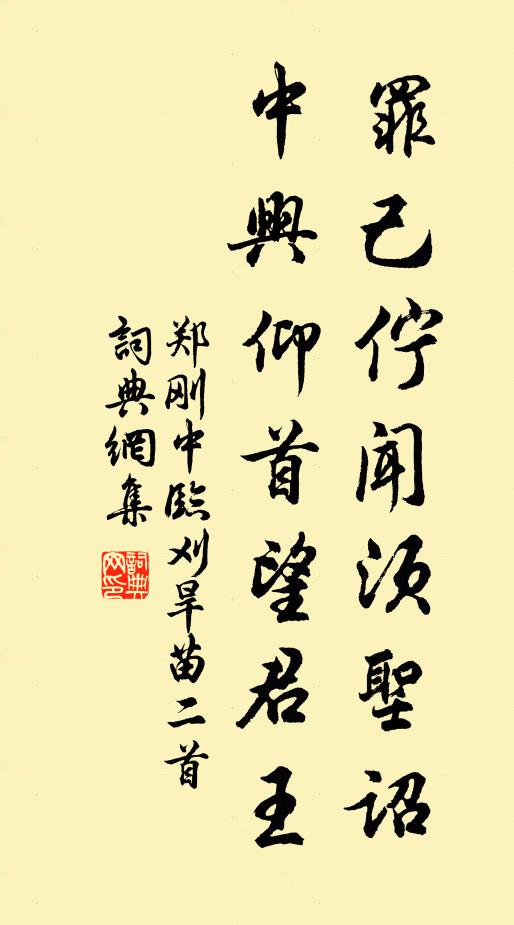 罪己佇聞須聖詔
中興仰首望君王
郑刚中臨刈旱苗二首
詞典網集
詞典
网印